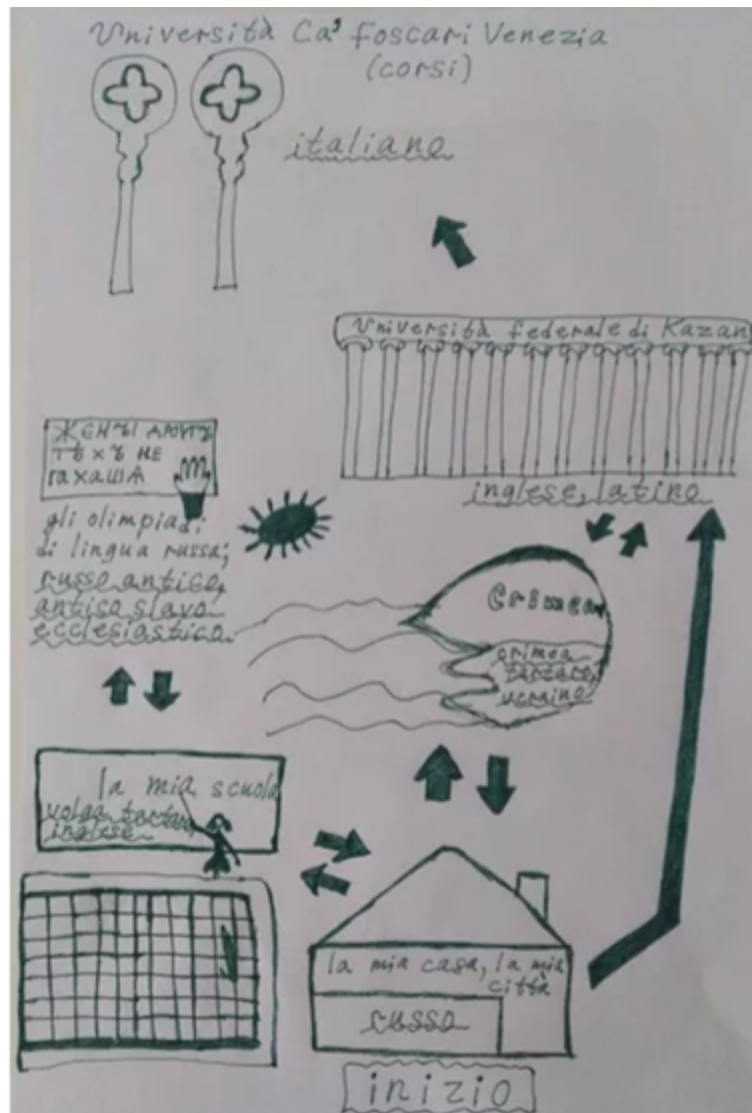 Università Ca' Foscari Venezia
(corsi)
italiano
Università federale di Kazan
inglese, latino
ТѢХЪ НЕ
gli olimpiadi
di lingua russa;
russo antico,
antico slavo
ecclesiastico
Crimea
crimea
tartaro,
ucraino
la mia scuola
volga tartaro,
inglese
la mia casa, la mia
città
russo
inizio